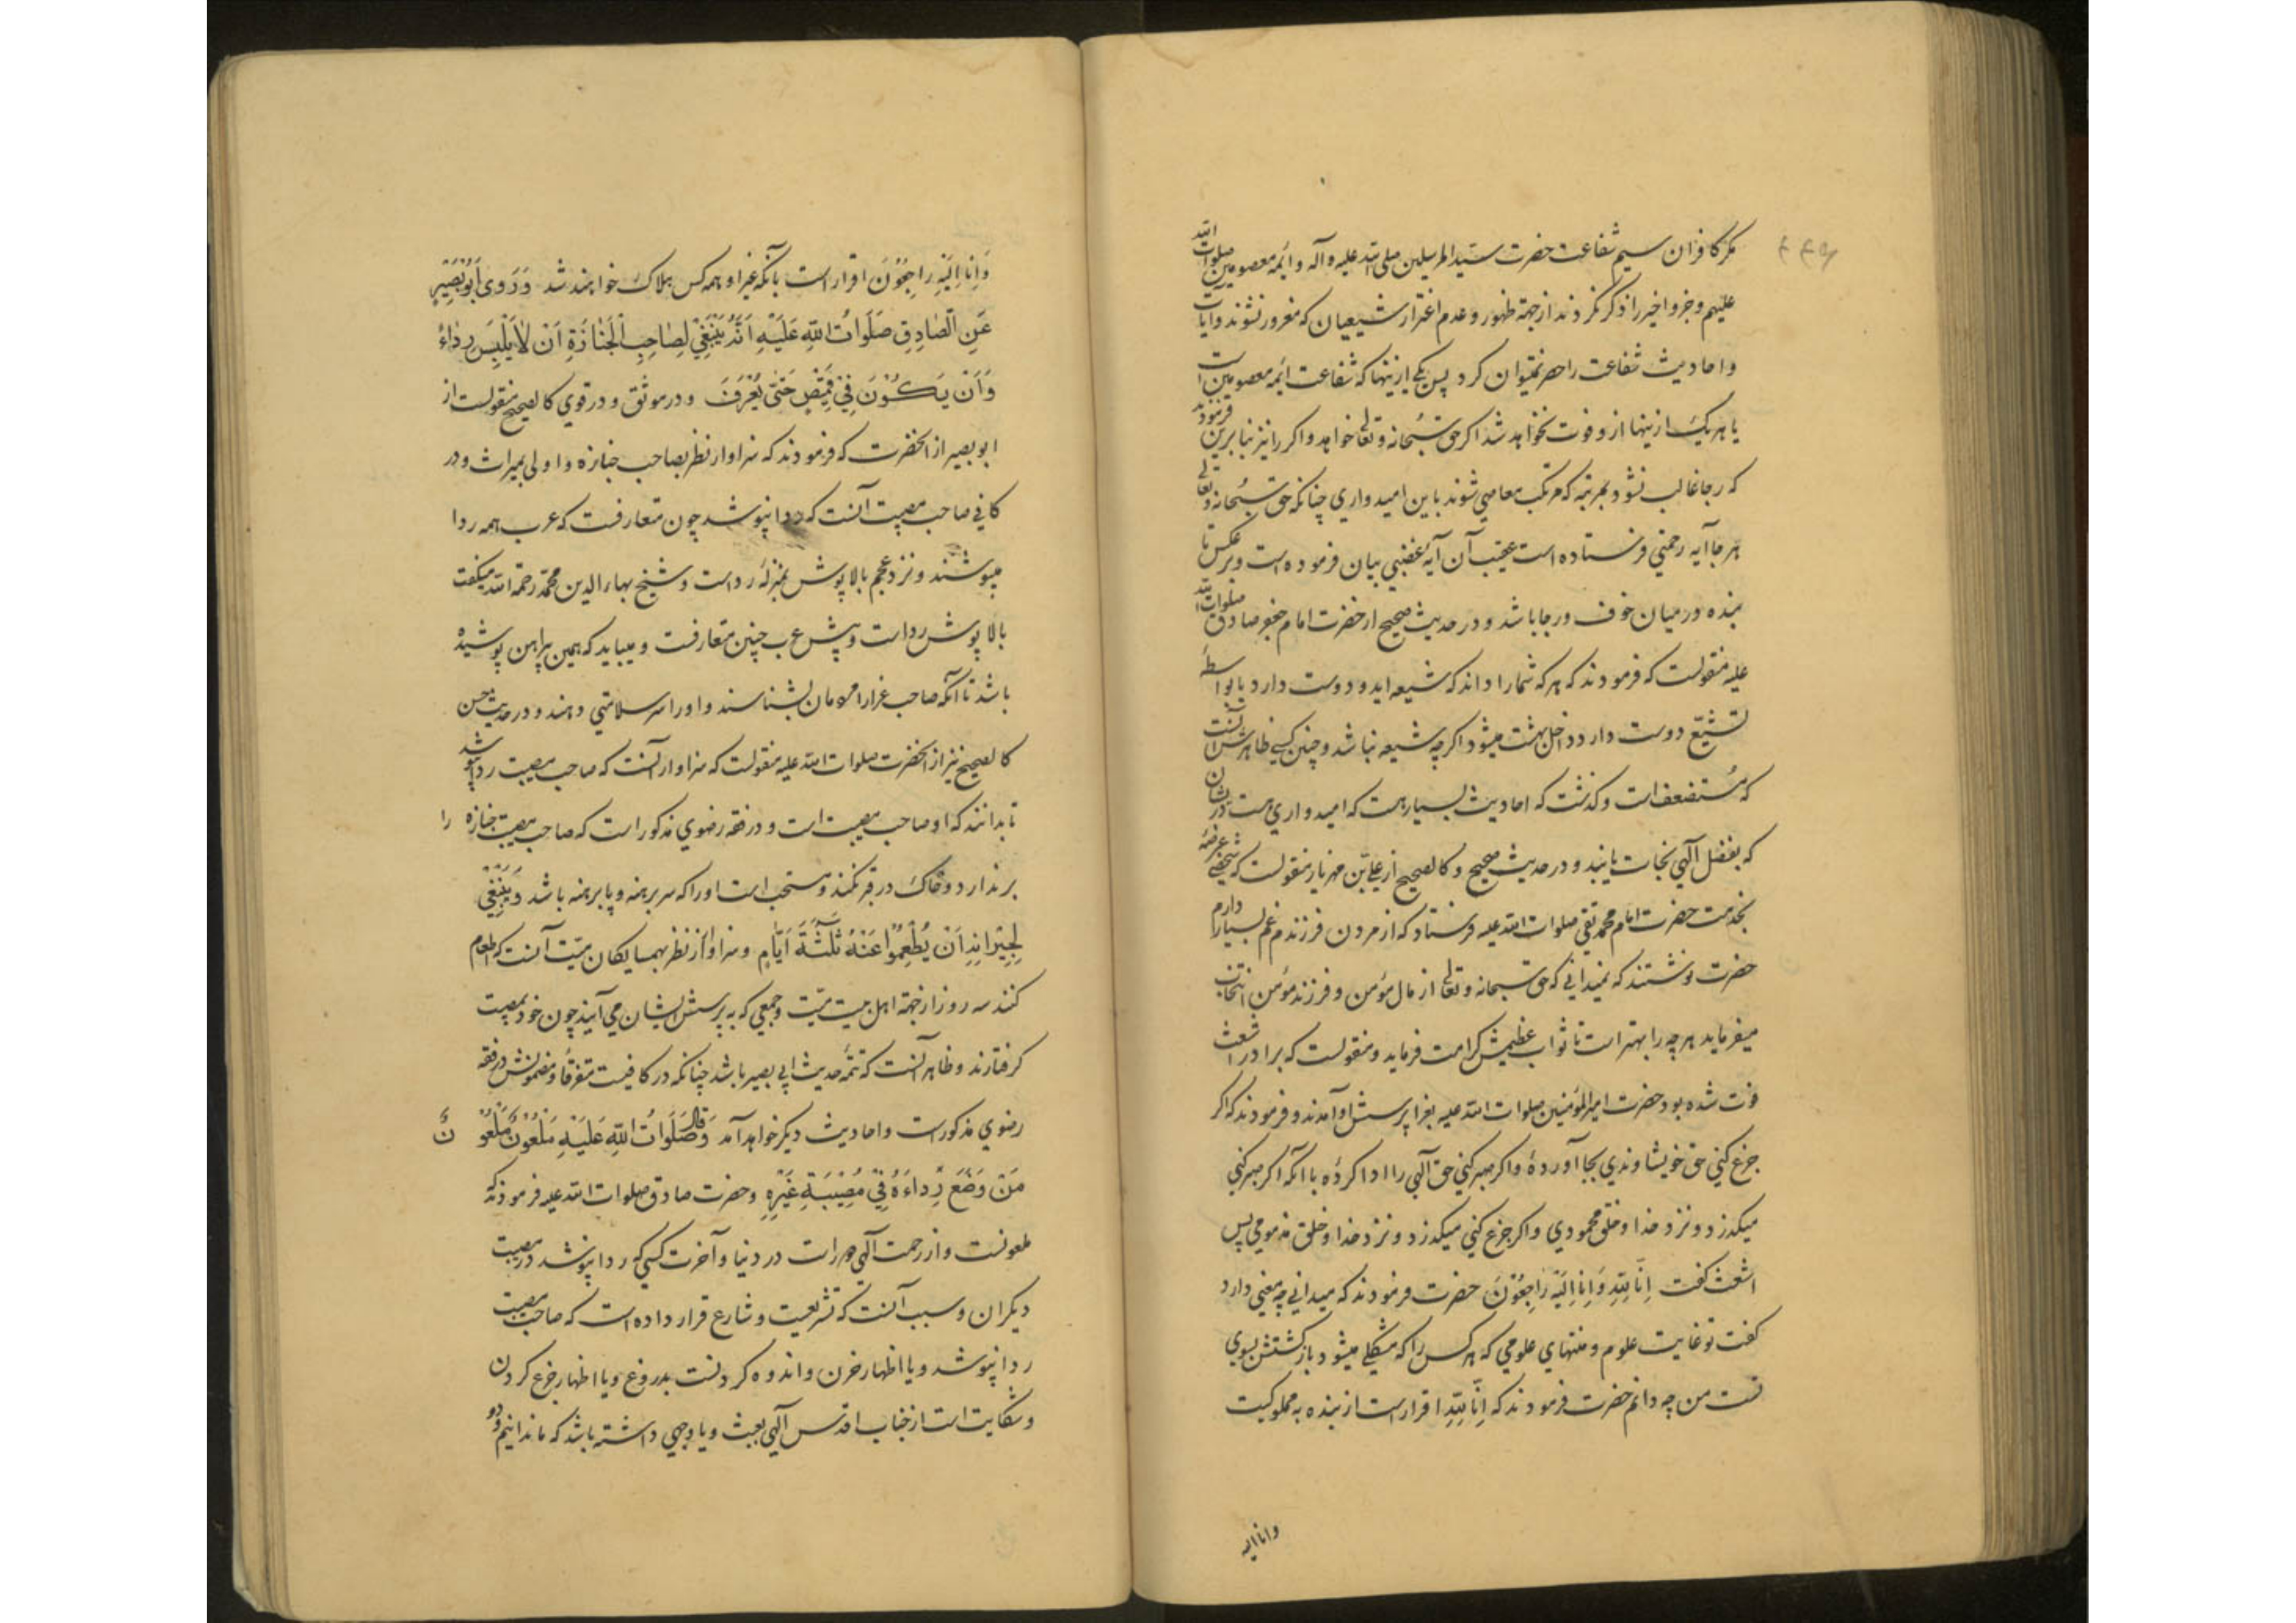 مکر کافران سیم شفاعت حضرت سیّد المرسلین صلی الله علیه و آله و ائمه معصومین صلوات الله
علیهم و جزو اخیر را ذکر نکردند از جهة ظهور و عدم اغترار شیعیان که مغرور نشوند و آیات
و احادیث شفاعت را حصر نمیتوان کرد پس یکی ازینها که شفاعت ائمه معصومین است
یا هر یک ازینها ازو فوت نخواهد شد اکر حق سبحانه و تعالی خواهد و اکر را نیز بنابرین فرمودند
که رجا غالب نشود بمرتبه که مرتکب معاصی شوند باین امیدواری چنانکه حق سبحانه و تعالی
هر جا آیه رحمتی فرستاده است عقیب آن آیه غضبی بیان فرموده است و بر عکس تا
بنده در میان خوف و رجا باشد و در حدیث صحیح از حضرت امام جعفر صادق صلوات الله
علیه منقولست که فرمودند که هر که شما را داند که شیعه اید و دوست دارد یا بواسطهٔ
تشیّع دوست دارد داخل بهشت میشود اکرچه شیعه نباشد و چنین کسی ظاهرش آنست
که مُستضعف است و کذشت که احادیث بسیار هست که امیدواری هست درشان
که بفضل آلهی نجات یابند و در حدیث صحیح و کالصحیح از علی بن مهزیار منقولست که شخصی عرضهٔ
بخدمت حضرت امام محمد تقی صلوات الله علیه فرستاد که از مردن فرزندم غم بسیار دارم
حضرت نوشتند که نمیدانی که حق سبحانه و تعالی از مال مؤمن و فرزند مؤمن انتخاب
میفرماید هر چه را بهتر است تا ثواب عظیمش کرامت فرماید و منقولست که برادر اشعث
فوت شده بود حضرت امیر المؤمنین صلوات الله علیه بعزا پرسش او آمدند و فرمودند که اکر
جزع کنی حق خویشاوندی بجا آوردهٔ و اکر صبر کنی حق آلهی را ادا کردهٔ با آنکه اکر صبر کنی
میکذرد و نزد خدا و خلق محمودی و اکر جزع کنی میکذرد و نزد خدا و خلق مذمومی پس
اشعث کفت اِنَّا لِلّٰهِ وَاِنَّا اِلَیْهِ رَاجِعُوْنَ حضرت فرمودند که میدانی چه معنی دارد
کفت تو غایت علوم و منتهای علومی که هر کس را که مشکلی میشود بازکشتش بسوی
تست من چه دانم حضرت فرمودند که اِنَّا لِلّٰهِ اقرار است از بنده به مملوکیت
وانا الیه
وَاِنَّا اِلَیْهِ رَاجِعُوْنَ اقرار است بآنکه غیر او همه کس هلاک خواهند شد وَرَوَی اَبُوْبَصِیْرٍ
عَنِ الصَّادِقِ صَلَوَاتُ اللّٰهِ عَلَیْهِ اَنَّهُ یَنْبَغِیْ لِصَاحِبِ الْجَنَازَةِ اَنْ لَا یَلْبَسَ رِدَاءً
وَاَنْ یَکُوْنَ فِیْ قَمِیْصٍ حَتّٰی یُعْرَفَ و در موثق و در قوی کالصحیح منقولست از
ابو بصیر از آنحضرت که فرمودند که سزاوار نظر بصاحب جنازه و اولی بمیراث و در
کافی صاحب مصیبت آنست که ردا نپوشد چون متعارفست که عرب همه ردا
میپوشند و نزد عجم بالاپوش بمنزلهٔ رداست و شیخ بهاء الدین محمد رحمة الله میکفت
بالاپوش رداست و پیش عرب چنین متعارفست و میباید که همین پیراهن پوشیده
باشد تا آنکه صاحب عزا را مردمان بشناسند و او را سر سلامتی دهند و در حدیث حسن
کالصحیح نیز از آنحضرت صلوات الله علیه منقولست که سزاوار آنست که صاحب مصیبت ردا نپوشد
تا بدانند که او صاحب مصیبت است و در فقه رضوی مذکور است که صاحب مصیبت جنازه را
بر ندارد و خاک در قبر نکند و مستحب است او را که سر برهنه و پا برهنه باشد وَیَنْبَغِیْ
لِجِیْرَانِهِ اَنْ یُطْعِمُوْا عَنْهُ ثَلٰثَةَ اَیَّامٍ و سزاوار نظر بهمسایکان میّت آنست که طعام
کنند سه روز از جهة اهل بیت میّت و جمعی که به پرسش ایشان می آیند چون خود بمصیبت
کرفتارند و ظاهر آنست که تتمهٔ حدیث ابی بصیر باشد چنانکه در کافیست متفرقاً و مضمونش در فقه
رضوی مذکور است و احادیث دیکر خواهد آمد وَقَالَ صَلَوَاتُ اللّٰهِ عَلَیْهِ مَلْعُوْنٌ مَلْعُوْنٌ
مَنْ وَضَعَ رِدَاءَهُ فِیْ مُصِیْبَةِ غَیْرِهِ و حضرت صادق صلوات الله علیه فرمود که
ملعونست و از رحمت آلهی دور است در دنیا و آخرت کسی که ردا نپوشد در مصیبت
دیکران و سبب آنست که تشریعیت و شارع قرار داده است که صاحب مصیبت
ردا نپوشد و یا اظهار حزن و اندوه کردنست بدروغ و یا اظهار جزع کردن
و شکایت است از جناب اقدس آلهی بعبث و یا وجهی داشته باشد که ما ندانیم و دو